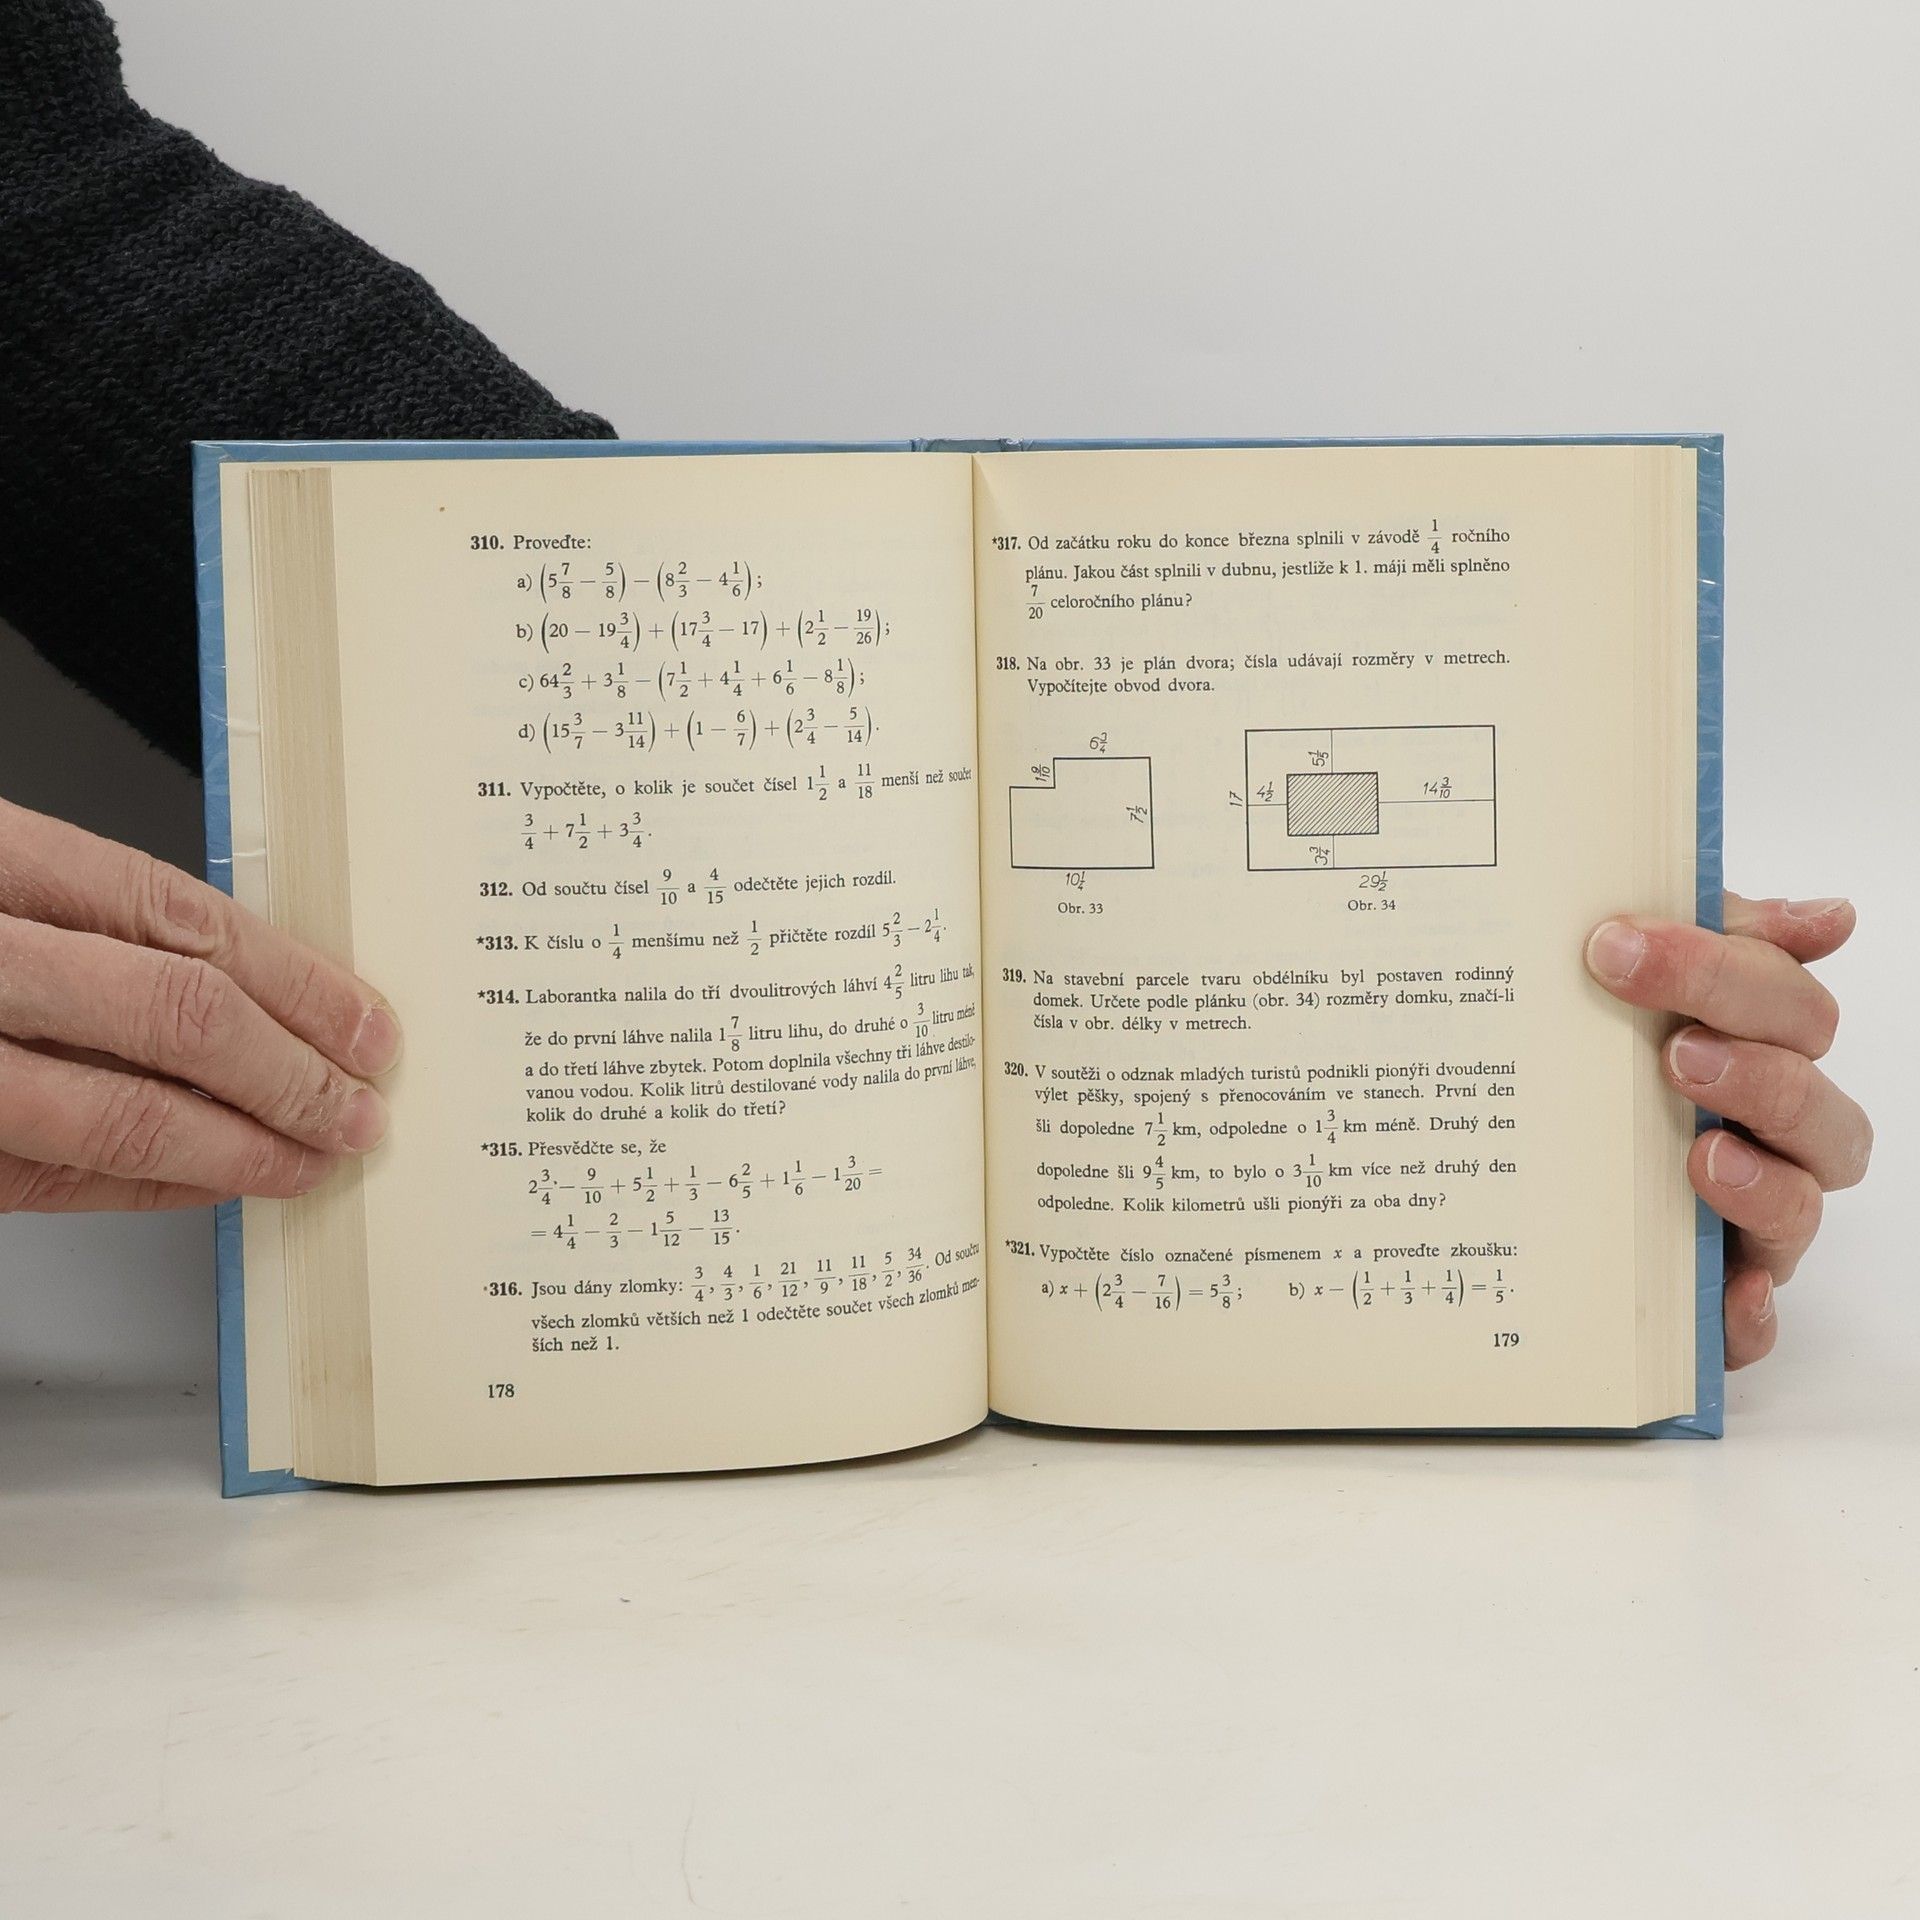 310. Proveďte:
a) (5 7/8 − 5/8) − (8 2/3 − 4 1/6);
b) (20 − 19 3/4) + (17 3/4 − 17) + (2 1/2 − 19/26);
c) 64 2/3 + 3 1/8 − (7 1/2 + 4 1/4 + 6 1/6 − 8 1/8);
d) (15 3/7 − 3 11/14) + (1 − 6/7) + (2 3/4 − 5/14).
311. Vypočtěte, o kolik je součet čísel 1 1/2 a 11/18 menší než součet
3/4 + 7 1/2 + 3 3/4.
312. Od součtu čísel 9/10 a 4/15 odečtěte jejich rozdíl.
*313. K číslu o 1/4 menšímu než 1/2 přičtěte rozdíl 5 2/3 − 2 1/4.
*314. Laborantka nalila do tří dvoulitrových láhví 4 2/5 litru lihu tak,
že do první láhve nalila 1 7/8 litru lihu, do druhé o 3/10 litru méně
a do třetí láhve zbytek. Potom doplnila všechny tři láhve destilo-
vanou vodou. Kolik litrů destilované vody nalila do první láhve,
kolik do druhé a kolik do třetí?
*315. Přesvědčte se, že
2 3/4 − 9/10 + 5 1/2 + 1/3 − 6 2/5 + 1 1/6 − 1 3/20 =
= 4 1/4 − 2/3 − 1 5/12 − 13/15.
*316. Jsou dány zlomky: 3/4, 4/3, 1/6, 21/12, 11/9, 11/18, 5/2, 34/36. Od součtu
všech zlomků větších než 1 odečtěte součet všech zlomků men-
ších než 1.
178
*317. Od začátku roku do konce března splnili v závodě 1/4 ročního
plánu. Jakou část splnili v dubnu, jestliže k 1. máji měli splněno
7/20 celoročního plánu?
318. Na obr. 33 je plán dvora; čísla udávají rozměry v metrech.
Vypočítejte obvod dvora.
6 3/4
1 9/10
7 1/2
10 1/4
Obr. 33
5 1/5
17
4 1/2
14 3/10
3 3/4
29 1/2
Obr. 34
319. Na stavební parcele tvaru obdélníku byl postaven rodinný
domek. Určete podle plánku (obr. 34) rozměry domku, značí-li
čísla v obr. délky v metrech.
320. V soutěži o odznak mladých turistů podnikli pionýři dvoudenní
výlet pěšky, spojený s přenocováním ve stanech. První den
šli dopoledne 7 1/2 km, odpoledne o 1 3/4 km méně. Druhý den
dopoledne šli 9 4/5 km, to bylo o 3 1/10 km více než druhý den
odpoledne. Kolik kilometrů ušli pionýři za oba dny?
*321. Vypočtěte číslo označené písmenem x a proveďte zkoušku:
a) x + (2 3/4 − 7/16) = 5 3/8; b) x − (1/2 + 1/3 + 1/4) = 1/5.
179